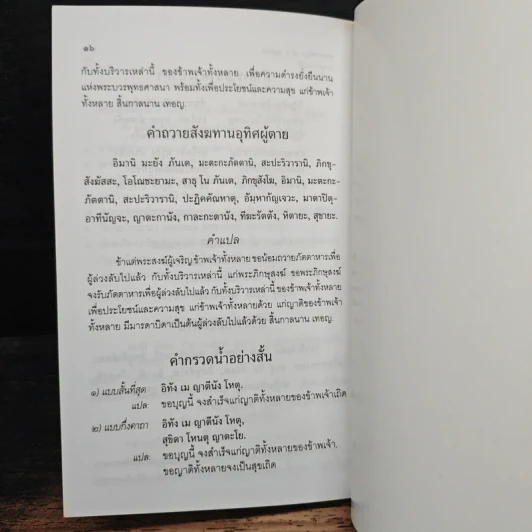 ๑๖
กับทั้งบริวารเหล่านี้ ของข้าพเจ้าทั้งหลาย เพื่อความดำรงยั่งยืนนาน
แห่งพระบวรพุทธศาสนา พร้อมทั้งเพื่อประโยชน์และความสุข แก่ข้าพเจ้า
ทั้งหลาย สิ้นกาลนาน เทอญ.
คำถวายสังฆทานอุทิศผู้ตาย
อิมานิ มะยัง ภันเต, มะตะกะภัตตานิ, สะปะริวารานิ, ภิกขุ-
สังฆัสสะ, โอโณชะยามะ, สาธุ โน ภันเต, ภิกขุสังโฆ, อิมานิ, มะตะกะ-
ภัตตานิ, สะปะริวารานิ, ปะฏิคคัณหาตุ, อัมหากัญเจวะ, มาตาปิตุ-
อาทีนัญจะ, ญาตะกานัง, กาละะกะตานัง, ทีฆะรัตตัง, หิตายะ, สุขายะ.
คำแปล
ข้าแต่พระสงฆ์ผู้เจริญ ข้าพเจ้าทั้งหลาย ขอน้อมถวายภัตตาหารเพื่อ
ผู้ล่วงลับไปแล้ว กับทั้งบริวารเหล่านี้ แก่พระภิกษุสงฆ์ ขอพระภิกษุสงฆ์
จงรับภัตตาหารเพื่อผู้ล่วงลับไปแล้ว กับทั้งบริวารเหล่านี้ ของข้าพเจ้าทั้งหลาย
เพื่อประโยชน์และความสุข แก่ข้าพเจ้าทั้งหลายด้วย แก่ญาติของข้าพเจ้า
ทั้งหลาย มีมารดาบิดาเป็นต้นผู้ล่วงลับไปแล้วด้วย สิ้นกาลนาน เทอญ.
คำกรวดน้ำอย่างสั้น
๑) แบบสั้นที่สุด : อิทัง เม ญาตีนัง โหตุ.
แปล: ขอบุญนี้ จงสำเร็จแก่ญาติทั้งหลายของข้าพเจ้าเถิด
๒) แบบกึ่งคาถา : อิทัง เม ญาตีนัง โหตุ,
สุขิตา โหนตุ ญาตะโย.
แปล: ขอบุญนี้ จงสำเร็จแก่ญาติทั้งหลายของข้าพเจ้า,
ขอญาติทั้งหลายจงเป็นสุขเถิด